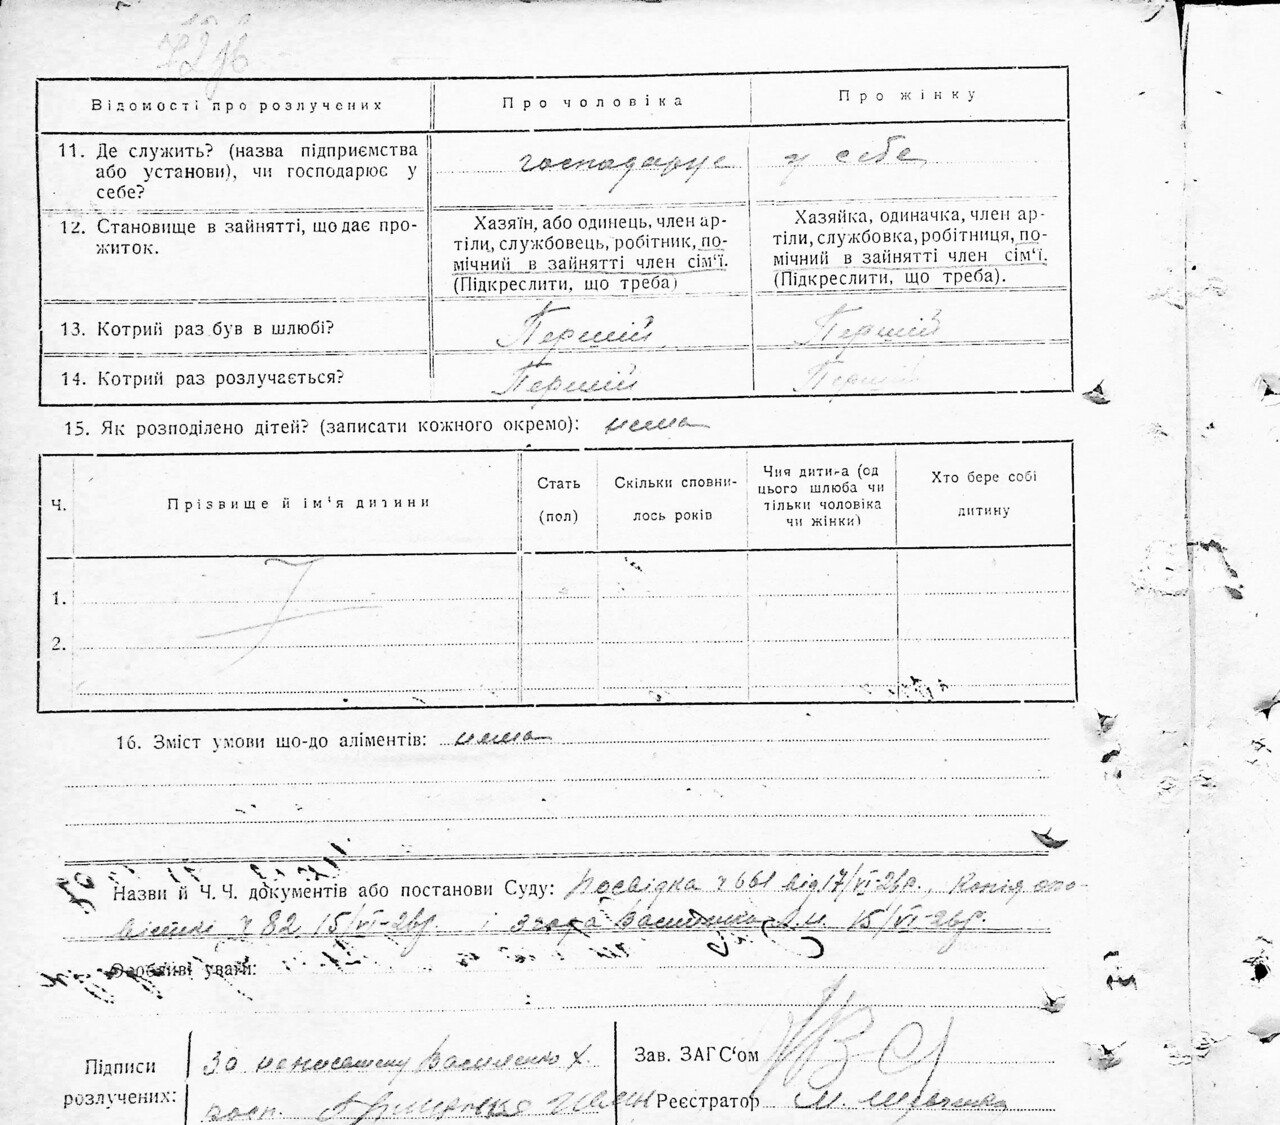 Відомості про розлучених
Про чоловіка
Про жінку
11. Де служить? (назва підприємства або установи), чи господарює у себе?
господарує у себе
12. Становище в зайнятті, що дає прожиток.
Хазяїн, або одинець, член артіли, службовець, робітник, помічний в зайнятті член сім'ї. (Підкреслити, що треба)
Хазяйка, одиначка, член артіли, службовка, робітниця, помічний в зайнятті член сім'ї. (Підкреслити, що треба).
13. Котрий раз був в шлюбі?
Перший
Перший
14. Котрий раз розлучається?
Перший
Перший
15. Як розподілено дітей? (записати кожного окремо): нема
Ч.
Прізвище й ім'я дитини
Стать (пол)
Скільки сповнилось років
Чия дитина (од цього шлюба чи тільки чоловіка чи жінки)
Хто бере собі дитину
1.
2.
16. Зміст умови що-до аліментів: нема
Назви й Ч.Ч. документів або постанови Суду: Посвідка ч 661 від 17/VI-28р., Копія опо-
вістки ч 82 15/VI-28р. і 15/VI-28р.
Особливі уваги:
Підписи розлучених:
За неписьмену Василенко Х.
Зав. ЗАГС'ом
Реєстратор